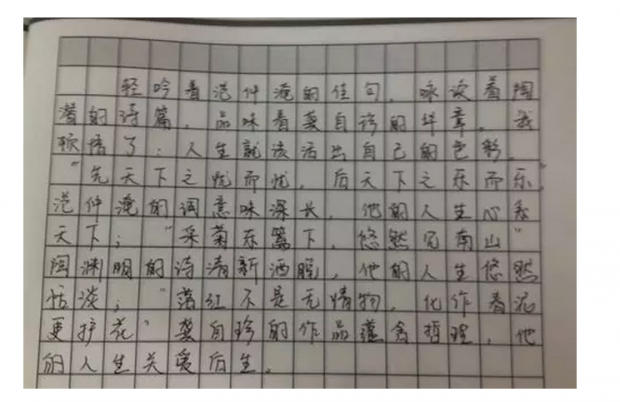 轻吟着范仲淹的佳句，咏读着陶
潜的诗篇，品味着龚自珍的华章，我
顿悟了：人生就该活出自己的色彩。
“先天下之忧而忧，后天下之乐而乐，
范仲淹的词意味深长，他的人生心系
天下；“采菊东篱下，悠然见南山”
陶渊明的诗清新洒脱，他的人生悠然
恬淡；“落红不是无情物，化作春泥
更护花”龚自珍的作品蕴含哲理，他
的人生关爱后生。